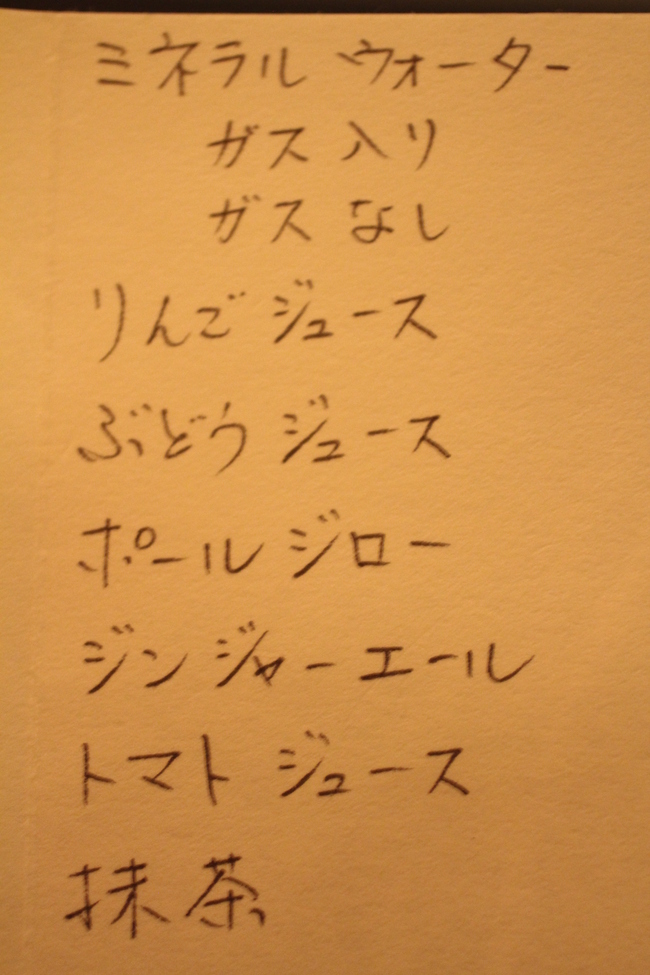 ミネラル ウォーター
ガス入り
ガスなし
りんごジュース
ぶどうジュース
ポールジロー
ジンジャーエール
トマトジュース
抹茶